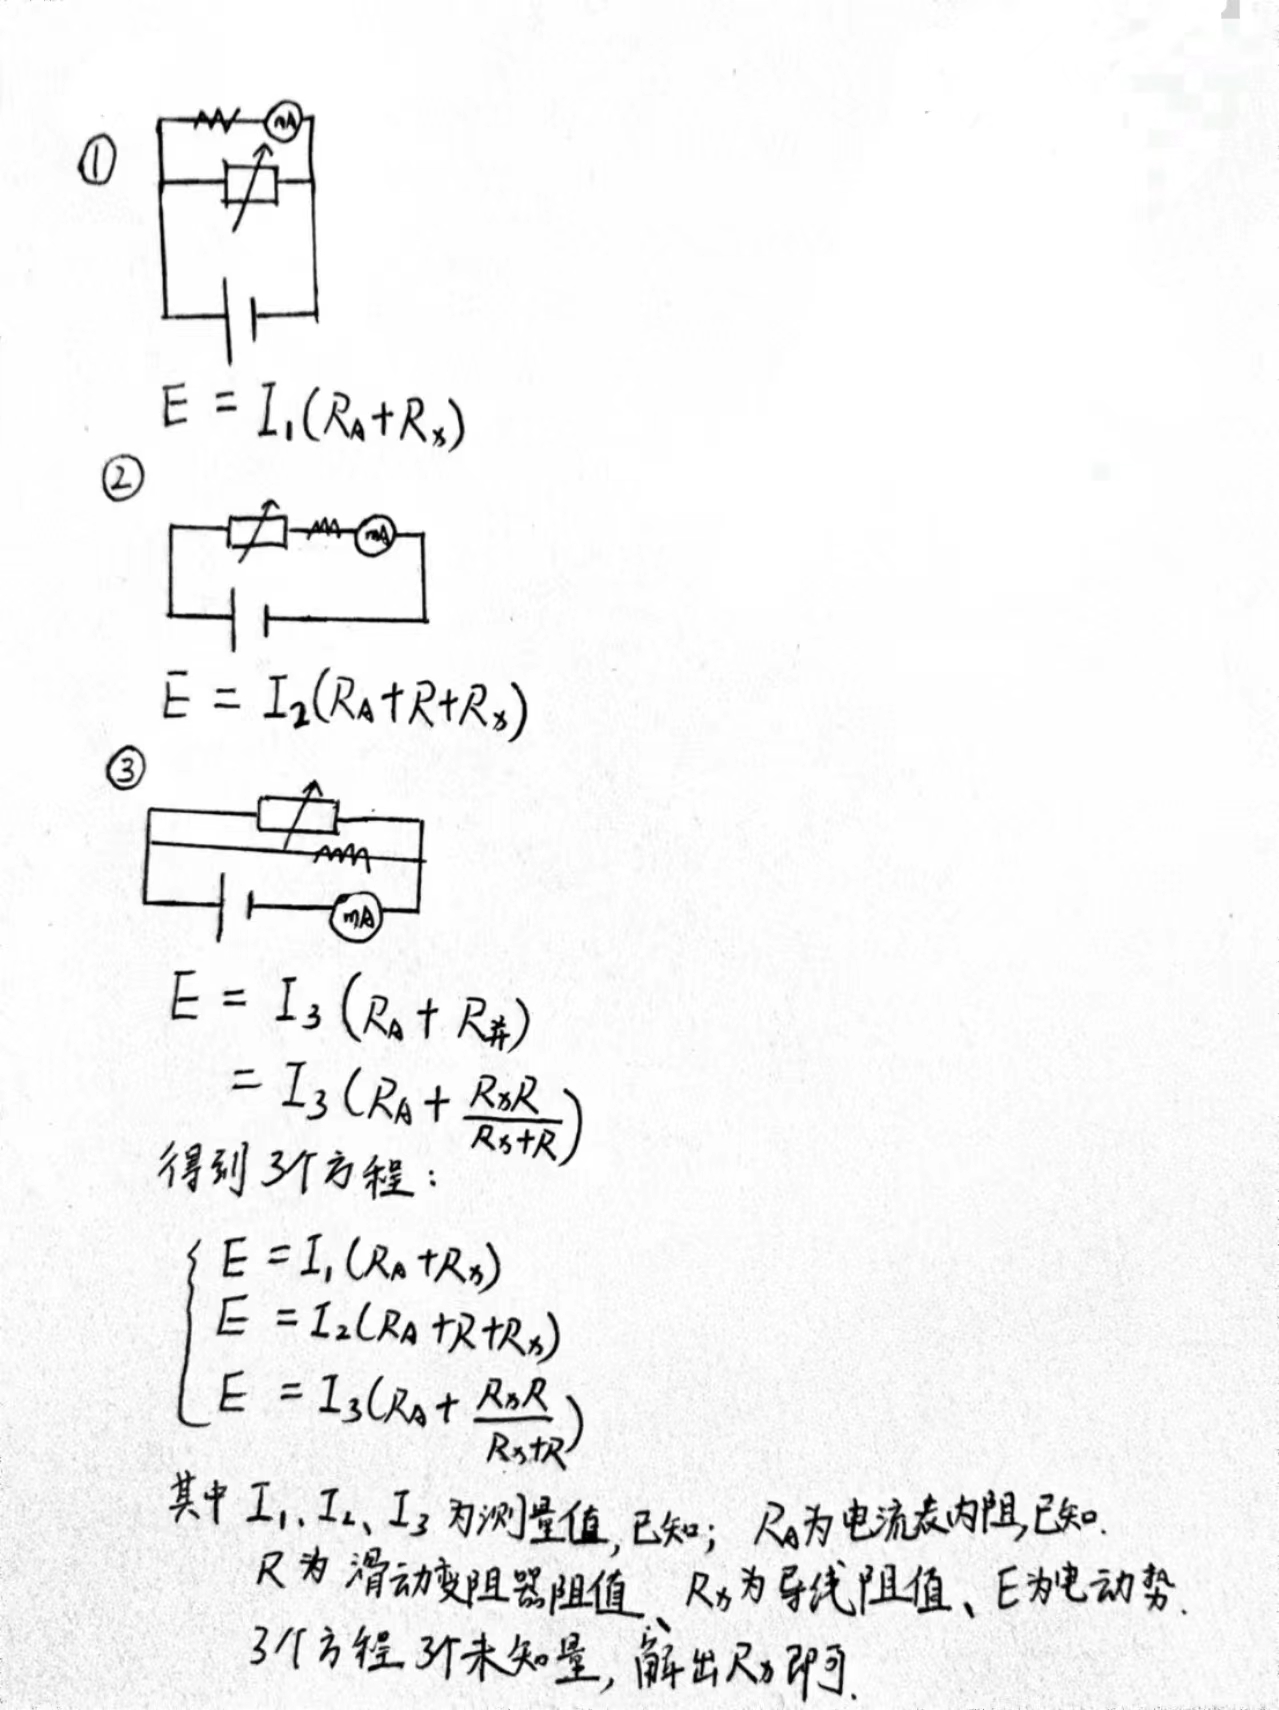 ①
mA
E = I₁(R_A+Rₓ)
②
mA
E = I₂(R_A+R+Rₓ)
③
mA
E = I₃(R_A+R并)
= I₃(R_A+\frac{RₓR}{Rₓ+R})
得到3个方程:
E = I₁(R_A+Rₓ)
E = I₂(R_A+R+Rₓ)
E = I₃(R_A+\frac{RₓR}{Rₓ+R})
其中I₁、I₂、I₃为测量值,已知; R_A为电流表内阻,已知.
R为滑动变阻器阻值、Rₓ为导线阻值、E为电动势.
3个方程3个未知量,解出Rₓ即可.